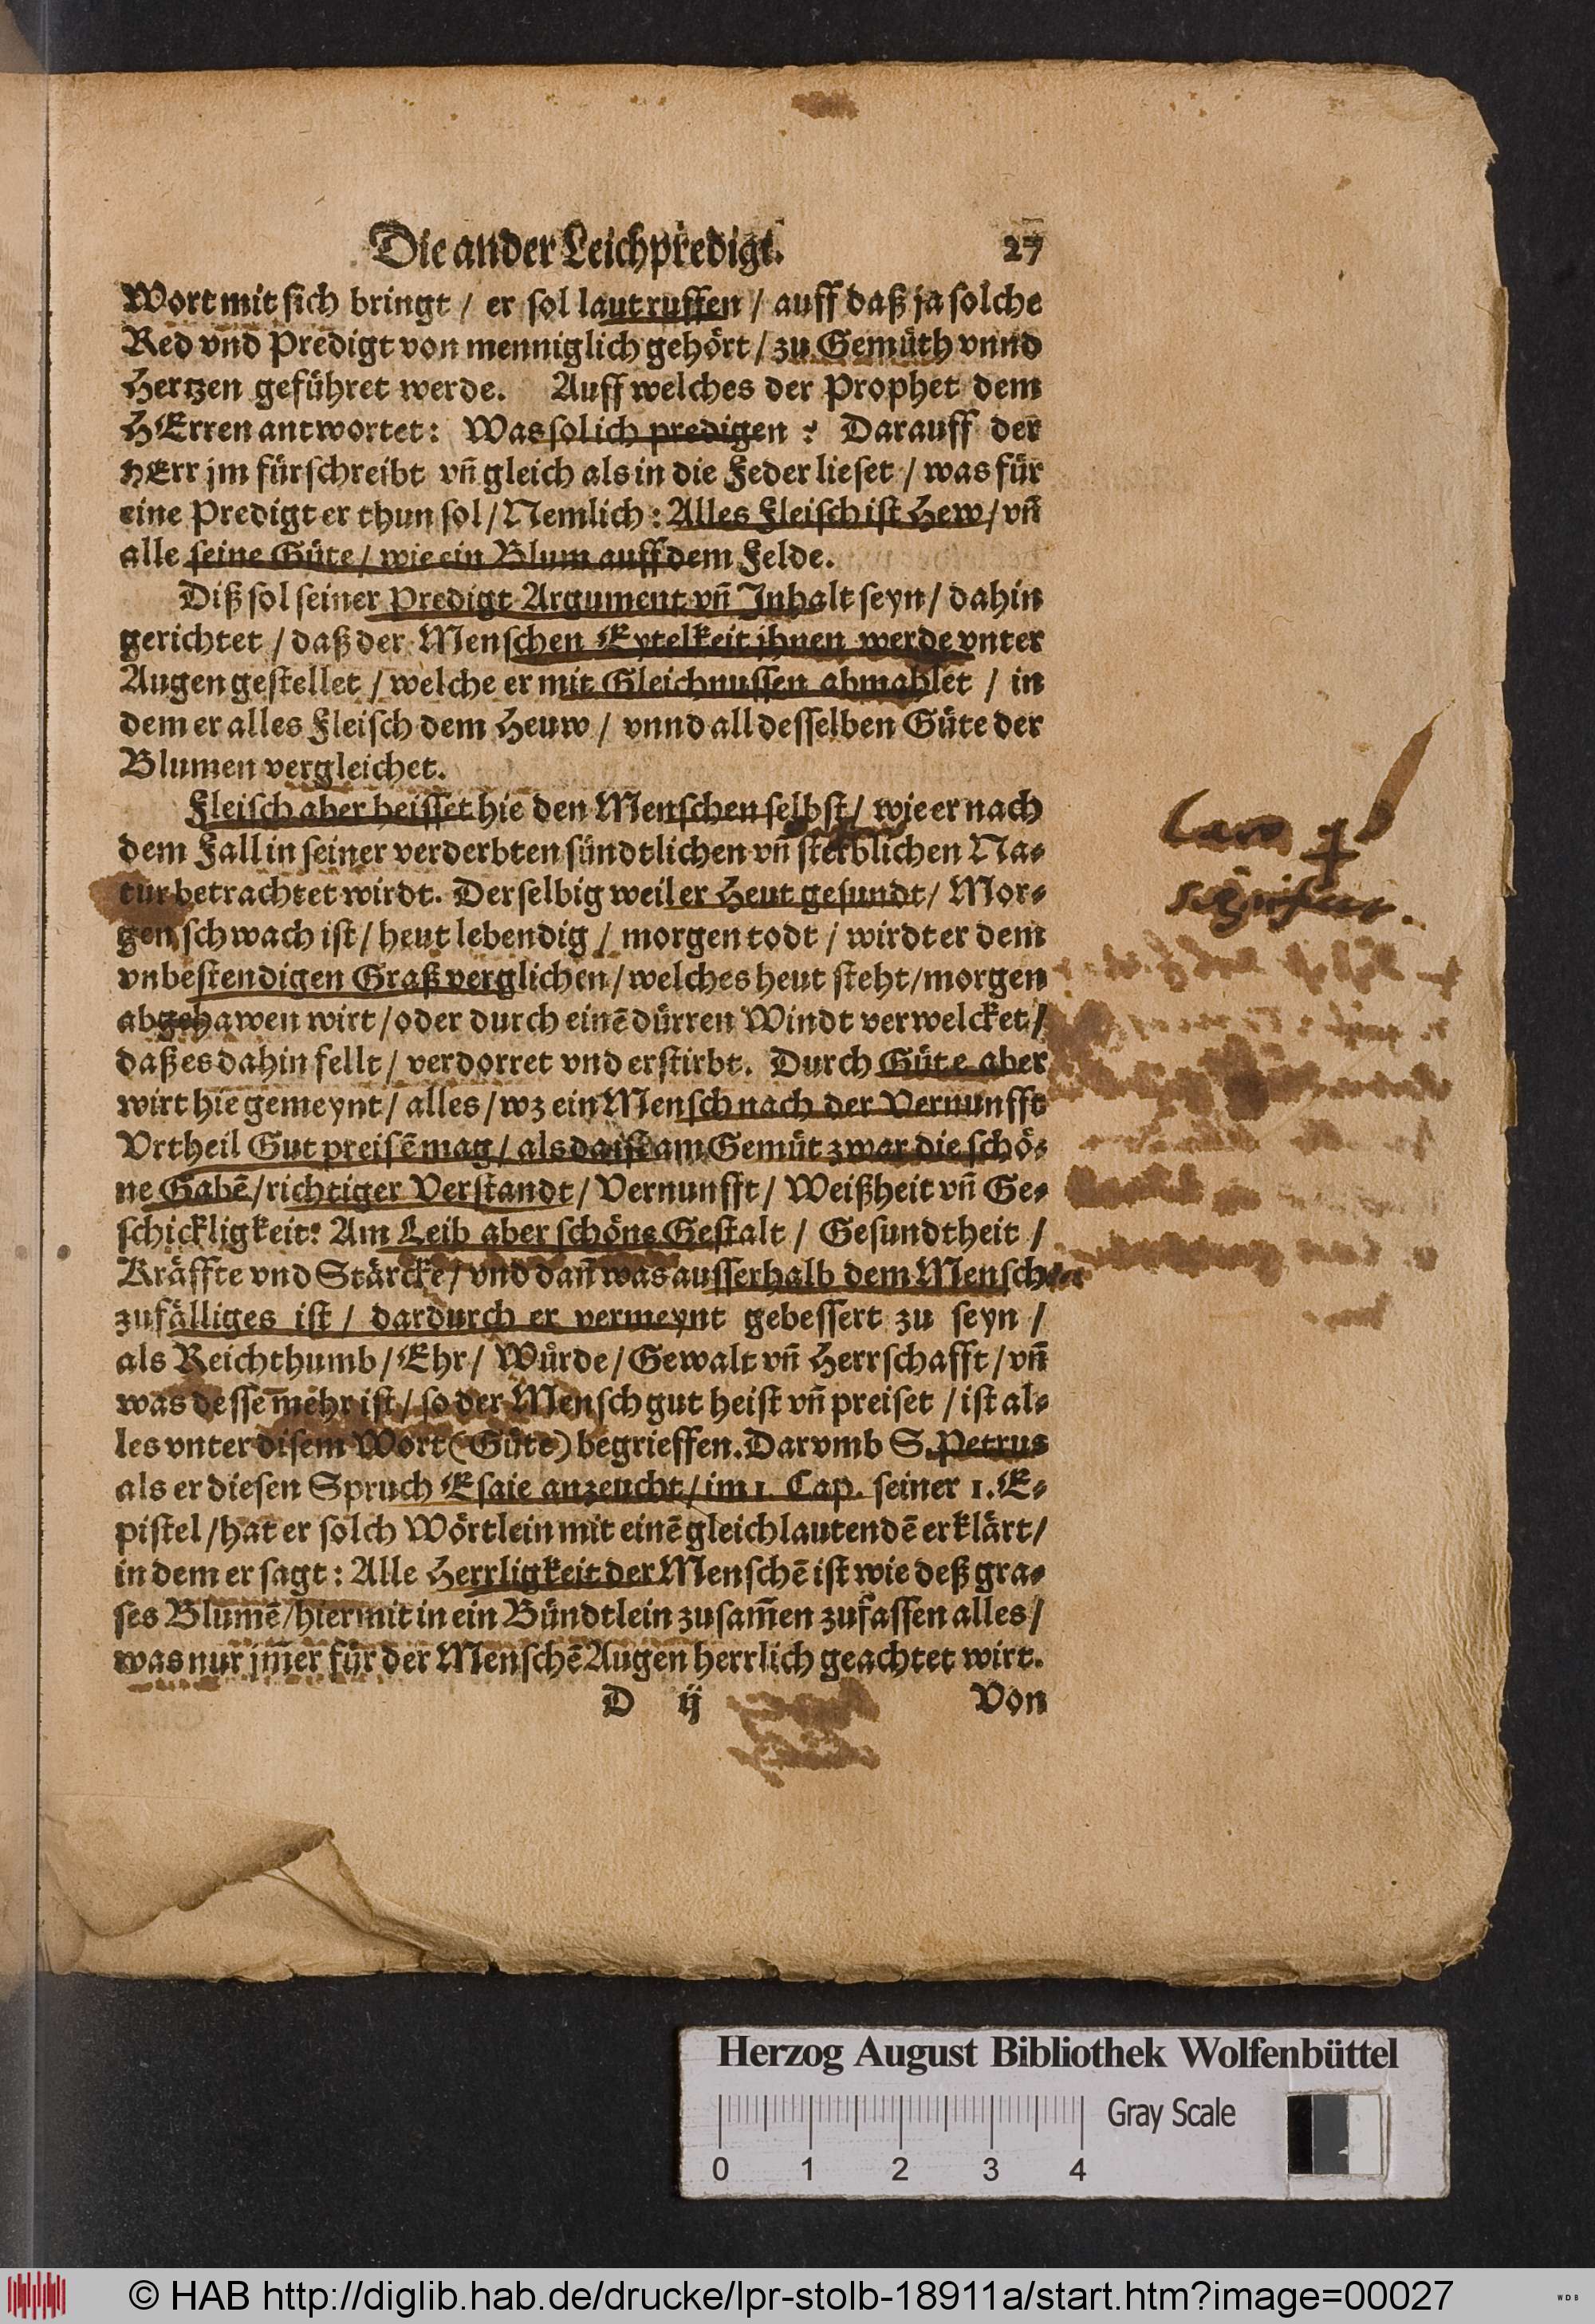 Die ander Leichpredigt. 27
Wort mit sich bringt / er sol laut ruffen / auff daß ja solche
Red vnd Predigt von menniglich gehört / zu Gemüth vnnd
Hertzen geführet werde. Auff welches der Prophet dem
HErren antwortet: Was sol ich predigen? Darauff der
HErr jm fürschreibt vñ gleich als in die Feder lieset / was für
eine Predigt er thun sol / Nemlich: Alles Fleisch ist Hew / vñ
alle seine Güte / wie ein Blum auff dem Felde.
Diß sol seiner Predigt Argument vñ Inhalt seyn / dahin
gerichtet / daß der Menschen Eytelkeit ihnen werde vnter
Augen gestellet / welche er mit Gleichnussen abmahlet / in
dem er alles Fleisch dem Heuw / vnnd all desselben Güte der
Blumen vergleichet.
Fleisch aber heisset hie den Menschen selbst / wie er nach
dem Fall in seiner verderbten sündtlichen vñ sterblichen Na-
tur betrachtet wirdt. Derselbig weil er Heut gesundt / Mor-
gen schwach ist / heut lebendig / morgen todt / wirdt er dem
vnbestendigen Graß verglichen / welches heut steht / morgen
abgehawen wirt / oder durch einē dürren Windt verwelcket /
daß es dahin fellt / verdorret vnd erstirbt. Durch Güte aber
wirt hie gemeynt / alles / wz ein Mensch nach der Vernunfft
Vrtheil Gut preisē mag / als da ist am Gemüt zwar die schö-
ne Gabē / richtiger Verstandt / Vernunfft / Weißheit vñ Ge-
schickligkeit: Am Leib aber schöne Gestalt / Gesundtheit /
Kräffte vnd Stärcke / vnd dañ was ausserhalb dem Mensch
zufälliges ist / dardurch er vermeynt gebessert zu seyn /
als Reichthumb / Ehr / Würde / Gewalt vñ Herrschafft / vñ
was dessen mehr ist / so der Mensch gut heist vñ preiset / ist al-
les vnter disem Wort (Güte) begrieffen. Darvmb S. Petrus
als er diesen Spruch Esaie anzeucht / im 1. Cap. seiner 1. E-
pistel / hat er solch Wörtlein mit einē gleichlautendē erklärt /
in dem er sagt: Alle Herrligkeit der Menschē ist wie deß gra-
ses Blumē / hiermit in ein Bündtlein zusam̄en zufassen alles /
was nur jm̄er für der Menschē Augen herrlich geachtet wirt.
D ij Von
Herzog August Bibliothek Wolfenbüttel
Gray Scale
0 1 2 3 4
© HAB http://diglib.hab.de/drucke/lpr-stolb-18911a/start.htm?image=00027
WDB